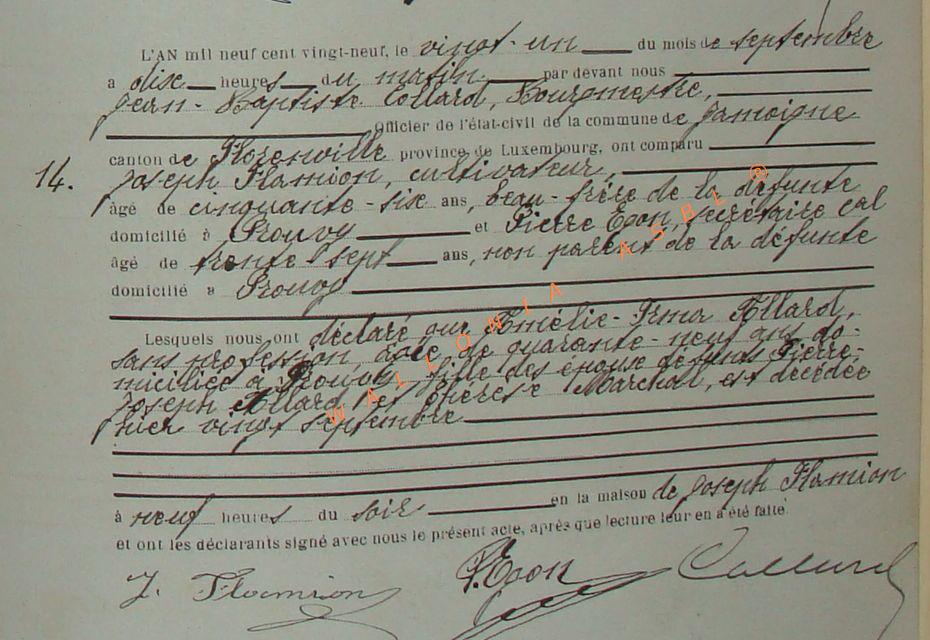 L'AN mil neuf cent vingt-neuf, le vingt-un du mois de septembre
a dix heures du matin par devant nous
Jean-Baptiste Collard, Bourgmestre,
Officier de l'état-civil de la commune de Jamoigne
canton de Florenville province de Luxembourg, ont comparu
14. Joseph Flamion, cultivateur,
âgé de cinquante-six ans, beau-frère de la défunte
domicilié à Prouvy et Pierre Egon, secrétaire cal
âgé de trente sept ans, non parent de la défunte
domicilié a Prouvy
Lesquels nous ont déclaré que Amélie-Irma Allard,
sans profession, âgée de quarante-neuf ans do-
miciliée à Prouvy, fille des époux défunts Pierre-
Joseph Allard et Thérèse Marchal, est décédée
hier vingt septembre
à neuf heures du soir en la maison de Joseph Flamion
et ont les déclarants signé avec nous le présent acte, après que lecture leur en a été faite.
J. Flamion P. Egon Collard
WALLONIA ASBL ®